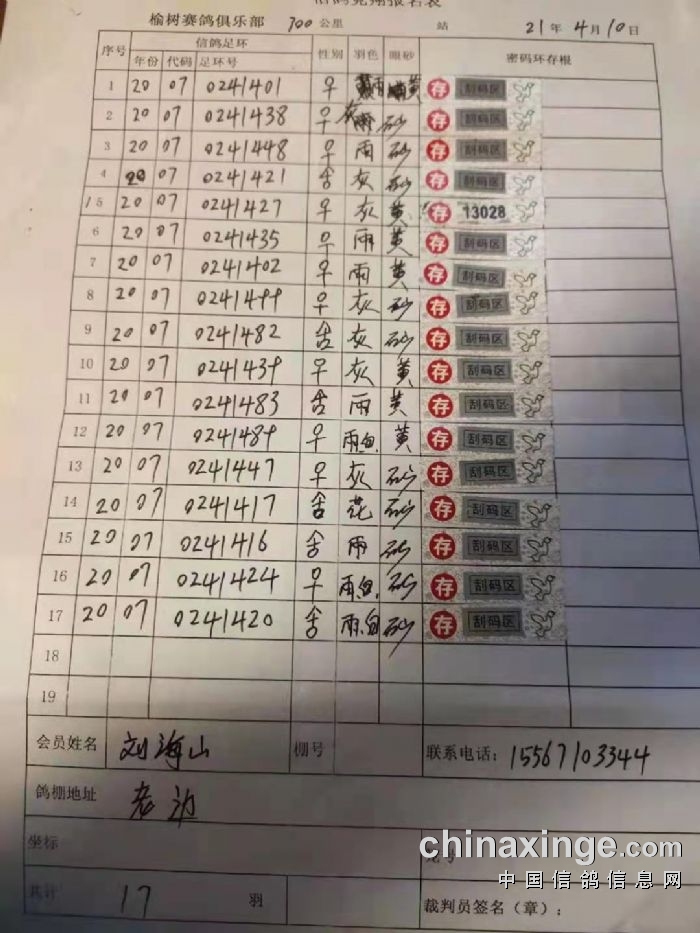 信鸽竞翔报名表
榆树赛鸽俱乐部 700 公里 站 21 年 4 月 10 日
序号 信鸽足环 性别 羽色 眼砂 密码环存根
年份 代码 足环号
1 20 07 0241401 早 雨 黄 存 刮码区
2 20 07 0241438 早 灰 砂 存 刮码区
3 20 07 0241448 早 雨 砂 存 刮码区
4 20 07 0241421 舍 灰 砂 存 刮码区
5 20 07 0241427 早 灰 黄 存 13028
6 20 07 0241435 早 雨 黄 存 刮码区
7 20 07 0241402 早 雨 黄 存 刮码区
8 20 07 0241499 早 灰 砂 存 刮码区
9 20 07 0241482 舍 灰 砂 存 刮码区
10 20 07 0241439 早 灰 黄 存 刮码区
11 20 07 0241483 舍 雨 黄 存 刮码区
12 20 07 0241489 早 雨白 黄 存 刮码区
13 20 07 0241447 早 灰 砂 存 刮码区
14 20 07 0241417 舍 花 砂 存 刮码区
15 20 07 0241416 舍 雨 砂 存 刮码区
16 20 07 0241424 早 雨白 砂 存 刮码区
17 20 07 0241420 舍 雨白 砂 存 刮码区
18
19
会员姓名 刘海山 棚号 联系电话：15567103344
鸽棚地址
坐标
共计 17 羽 裁判员签名（章）：
chinaxinge.com
中国信鸽信息网